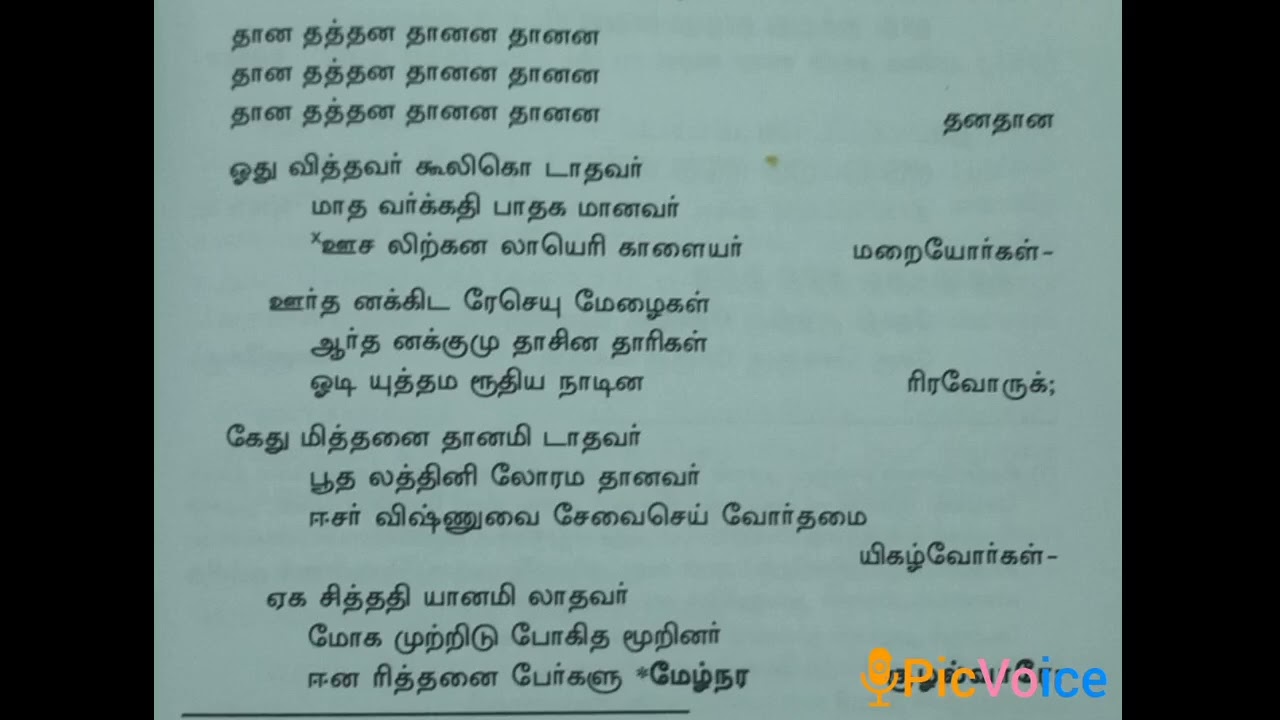 தான தத்தன தானன தானன
தான தத்தன தானன தானன
தான தத்தன தானன தானன தனதான
ஓது வித்தவர் கூலிகொ டாதவர்
மாத வர்க்கதி பாதக மானவர்
×ஊச லிற்கன லாயெரி காளையர் மறையோர்கள்-
ஊர்த னக்கிட ரேசெயு மேழைகள்
ஆர்த னக்குமு தாசின தாரிகள்
ஓடி யுத்தம ரூதிய நாடின ரிரவோருக்;
கேது மித்தனை தானமி டாதவர்
பூத லத்தினி லோரம தானவர்
ஈசர் விஷ்ணுவை சேவைசெய் வோர்தமை
யிகழ்வோர்கள்-
ஏக சித்ததி யானமி லாதவர்
மோக முற்றிடு போகித மூறினர்
ஈன ரித்தனை பேர்களு *மேழ்நர
PicVoice